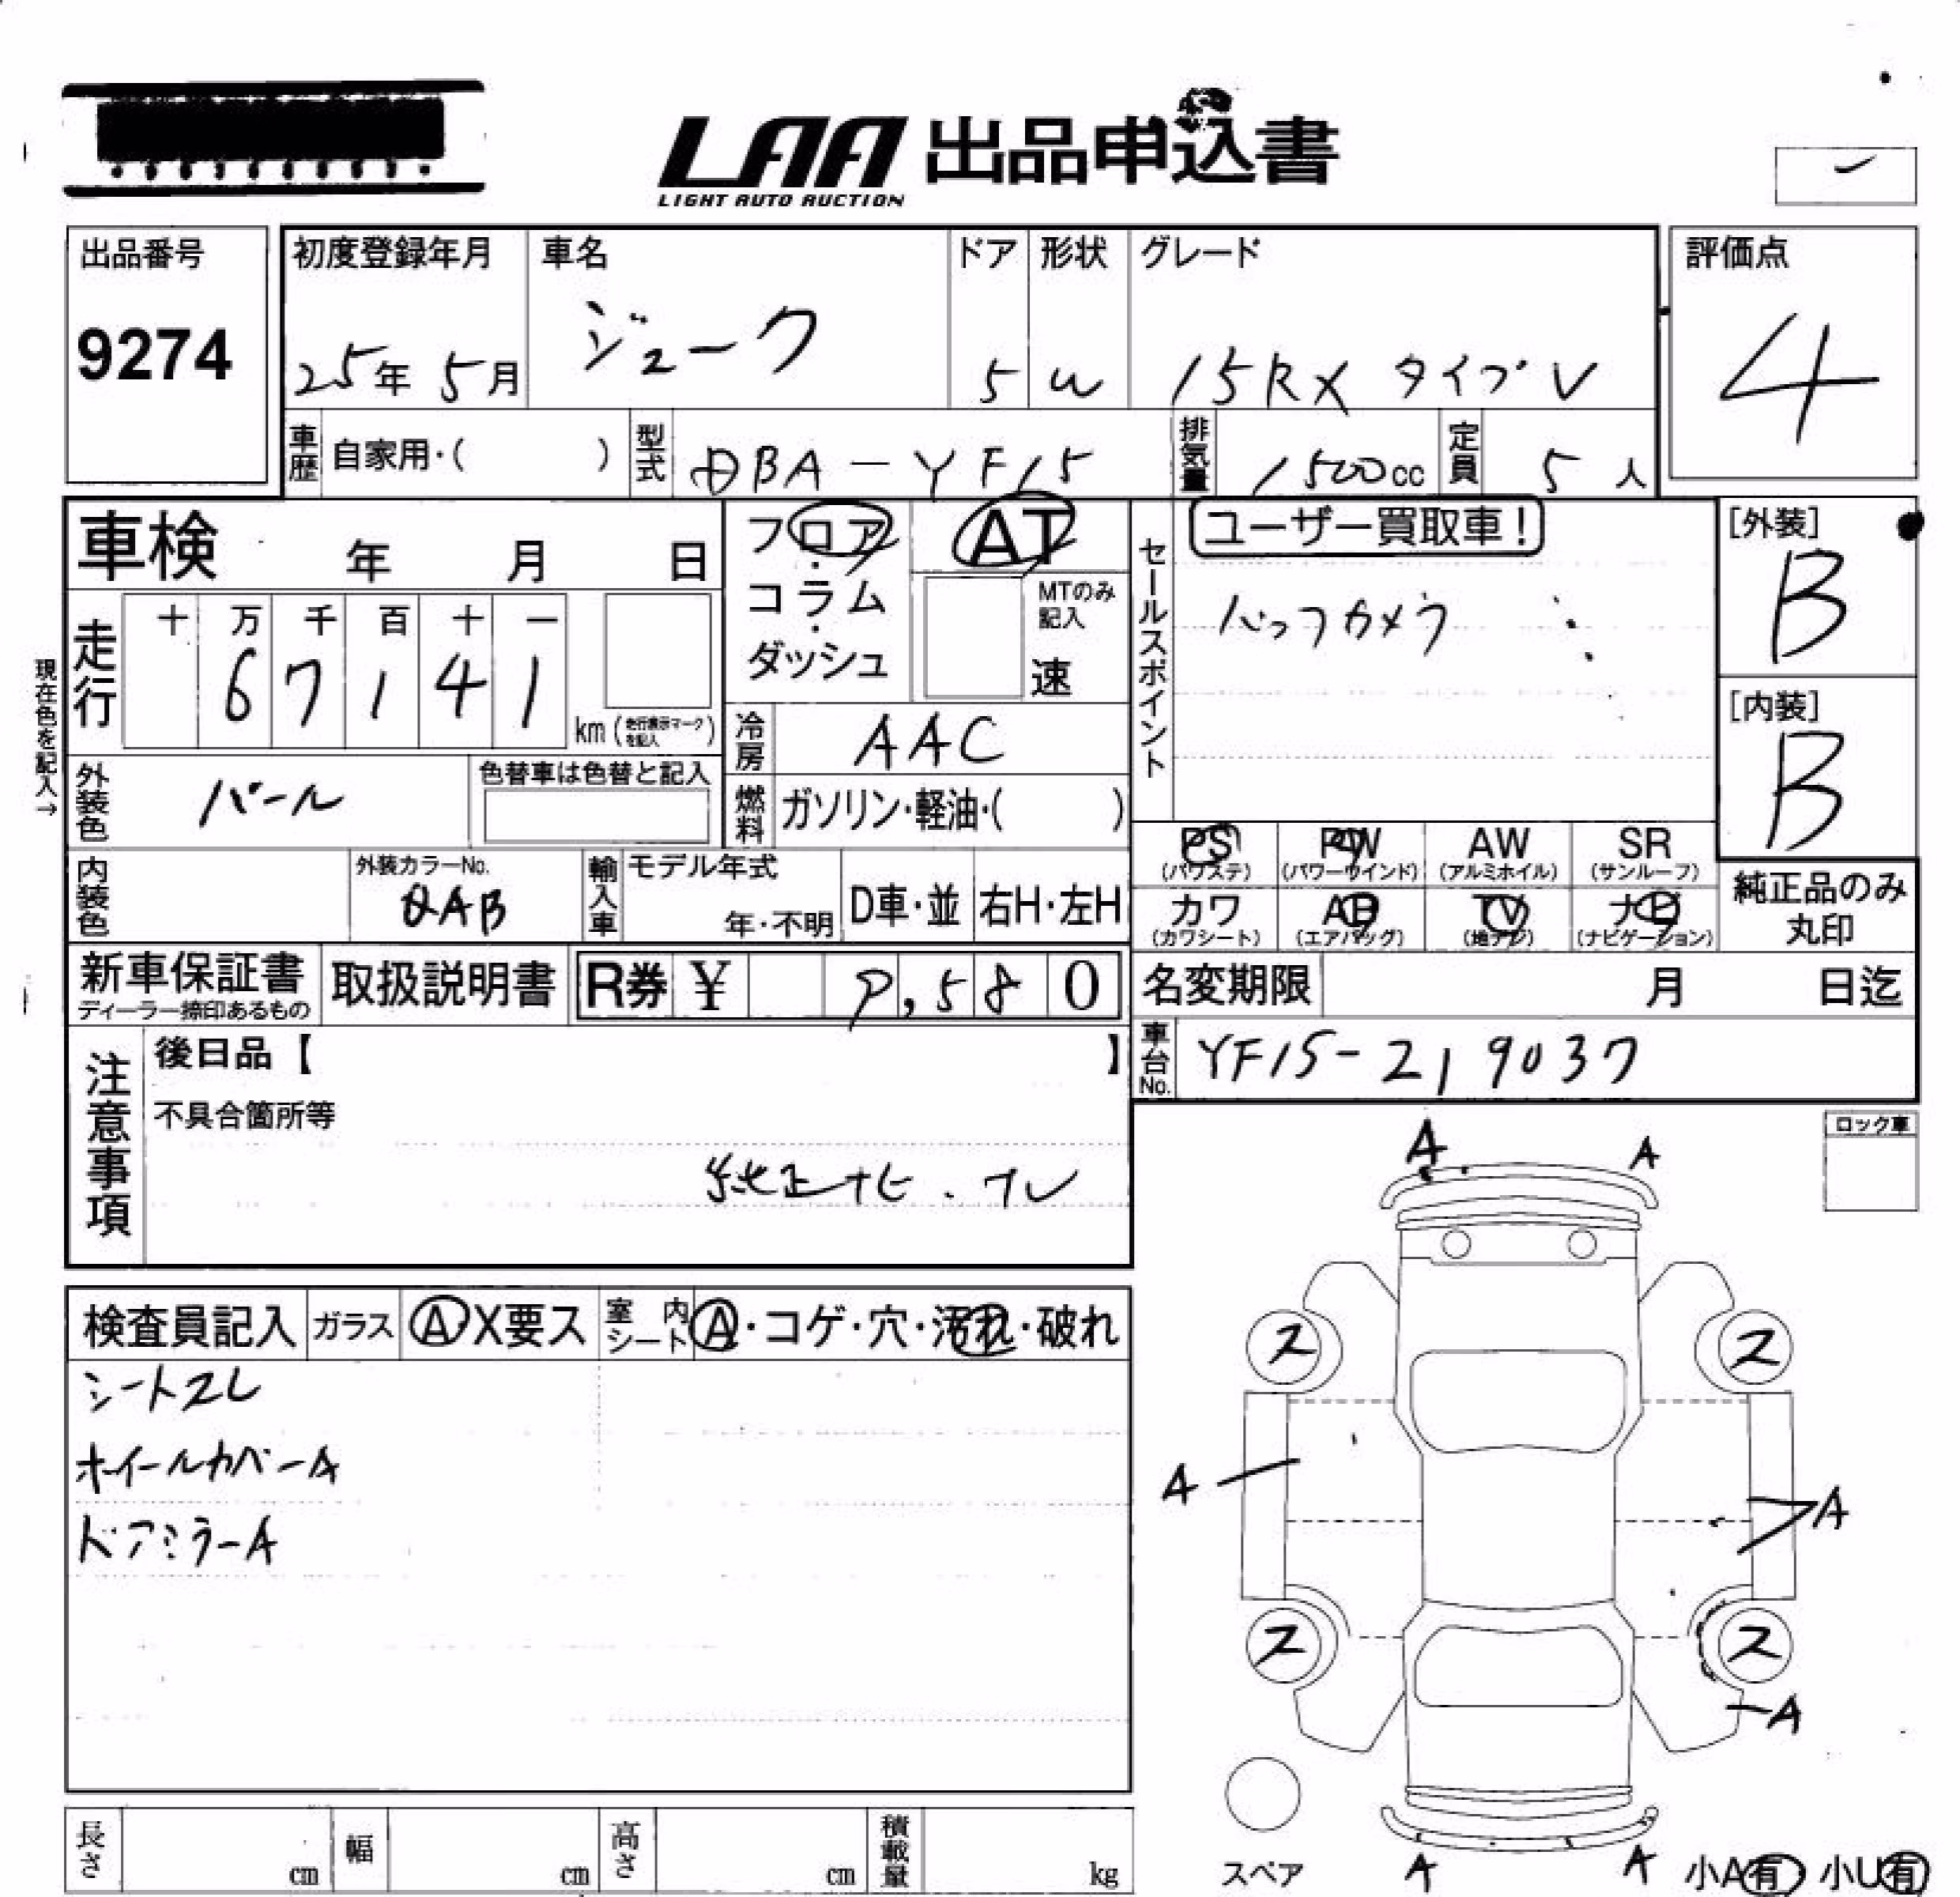 LAA 出品申込書
LIGHT AUTO AUCTION
出品番号 初度登録年月 車名 ドア 形状 グレード 評価点
9274 25年 5月 ジューク 5 W 15RX タイプV 4
車歴 自家用・( ) 型式 DBA-YF15 排気量 1500cc 定員 5人
車検 年 月 日 フロア AT セールスポイント ユーザー買取車! [外装]
コラム MTのみ記入 バックカメラ B
ダッシュ 速
現在色を記入→
走行 十 万 千 百 十 一
6 7 1 4 1 km (走行表示マークを記入)
冷房 AAC [内装]
B
外装色 パール 色替車は色替と記入 燃料 ガソリン・軽油・( )
PS PW AW SR
(パワステ) (パワーウインド) (アルミホイル) (サンルーフ)
内装色 外装カラーNo. 輸入車 モデル年式
QAB 年・不明 D車・並 右H・左H
カワ AB TV ナビ 純正品のみ
(カワシート) (エアバッグ) (地デジ) (ナビゲーション) 丸印
新車保証書 取扱説明書 R券 ¥ 9,580 名変期限 月 日迄
ディーラー捺印あるもの
注意事項 後日品【 】 車台No. YF15-219037
不具合箇所等 ロック車
純正ナビ・テレ
A A
検査員記入 ガラス A X要ス 室内シート A・コゲ・穴・汚れ・破れ
シートヱレ
ホイールカバーA
ドアミラーA
ス ス
A A
ス ス
A
スペア
A A
小A有 小U有
長さ cm 幅 cm 高さ cm 積載量 kg